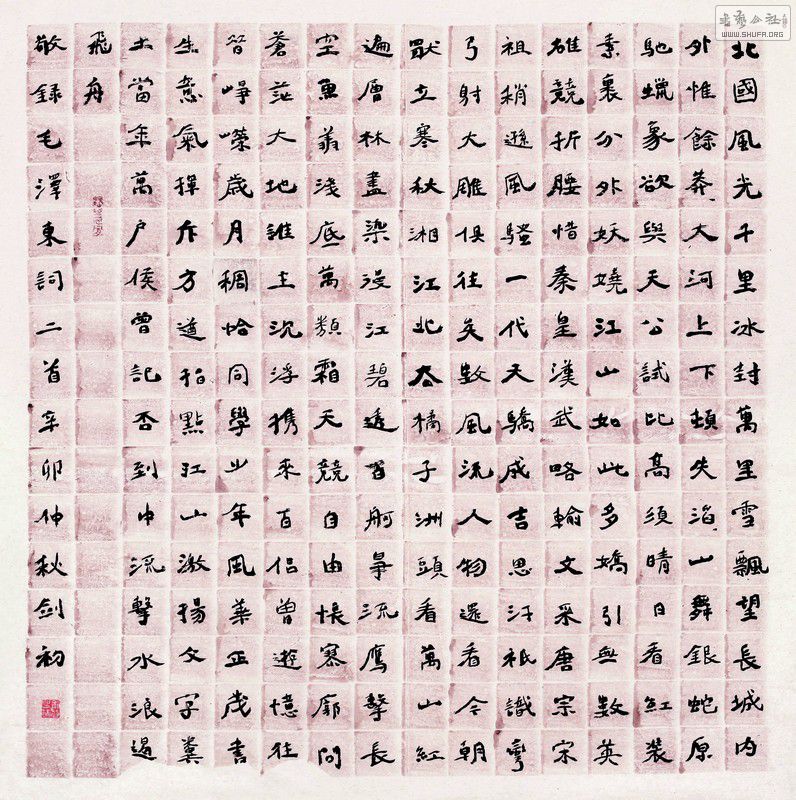 北國風光千里冰封萬里雪飄望長城內
外惟餘莽大河上下頓失滔山舞銀蛇原
馳蠟象欲與天公試比高須晴日看紅裝
素裹分外妖嬈江山如此多嬌引無數英
雄競折腰惜秦皇漢武略輸文采唐宗宋
祖稍遜風騷一代天驕成吉思汗祇識彎
弓射大雕俱往矣數風流人物還看今朝
立寒秋湘江北去橘子洲頭看萬山紅
遍層林盡染漫江碧透百舸爭流鷹擊長
空魚翔淺底萬類霜天競自由悵寥廓問
蒼茫大地誰主沉浮攜來百侶曾遊憶往
昔崢嶸歲月稠恰同學少年風華正茂書
生意氣揮斥方遒指點江山激揚文字糞
土當年萬戶侯曾記否到中流擊水浪遏
飛舟
敬録毛澤東詞二首辛卯仲秋劍初
书艺公社
WWW.SHUFA.ORG